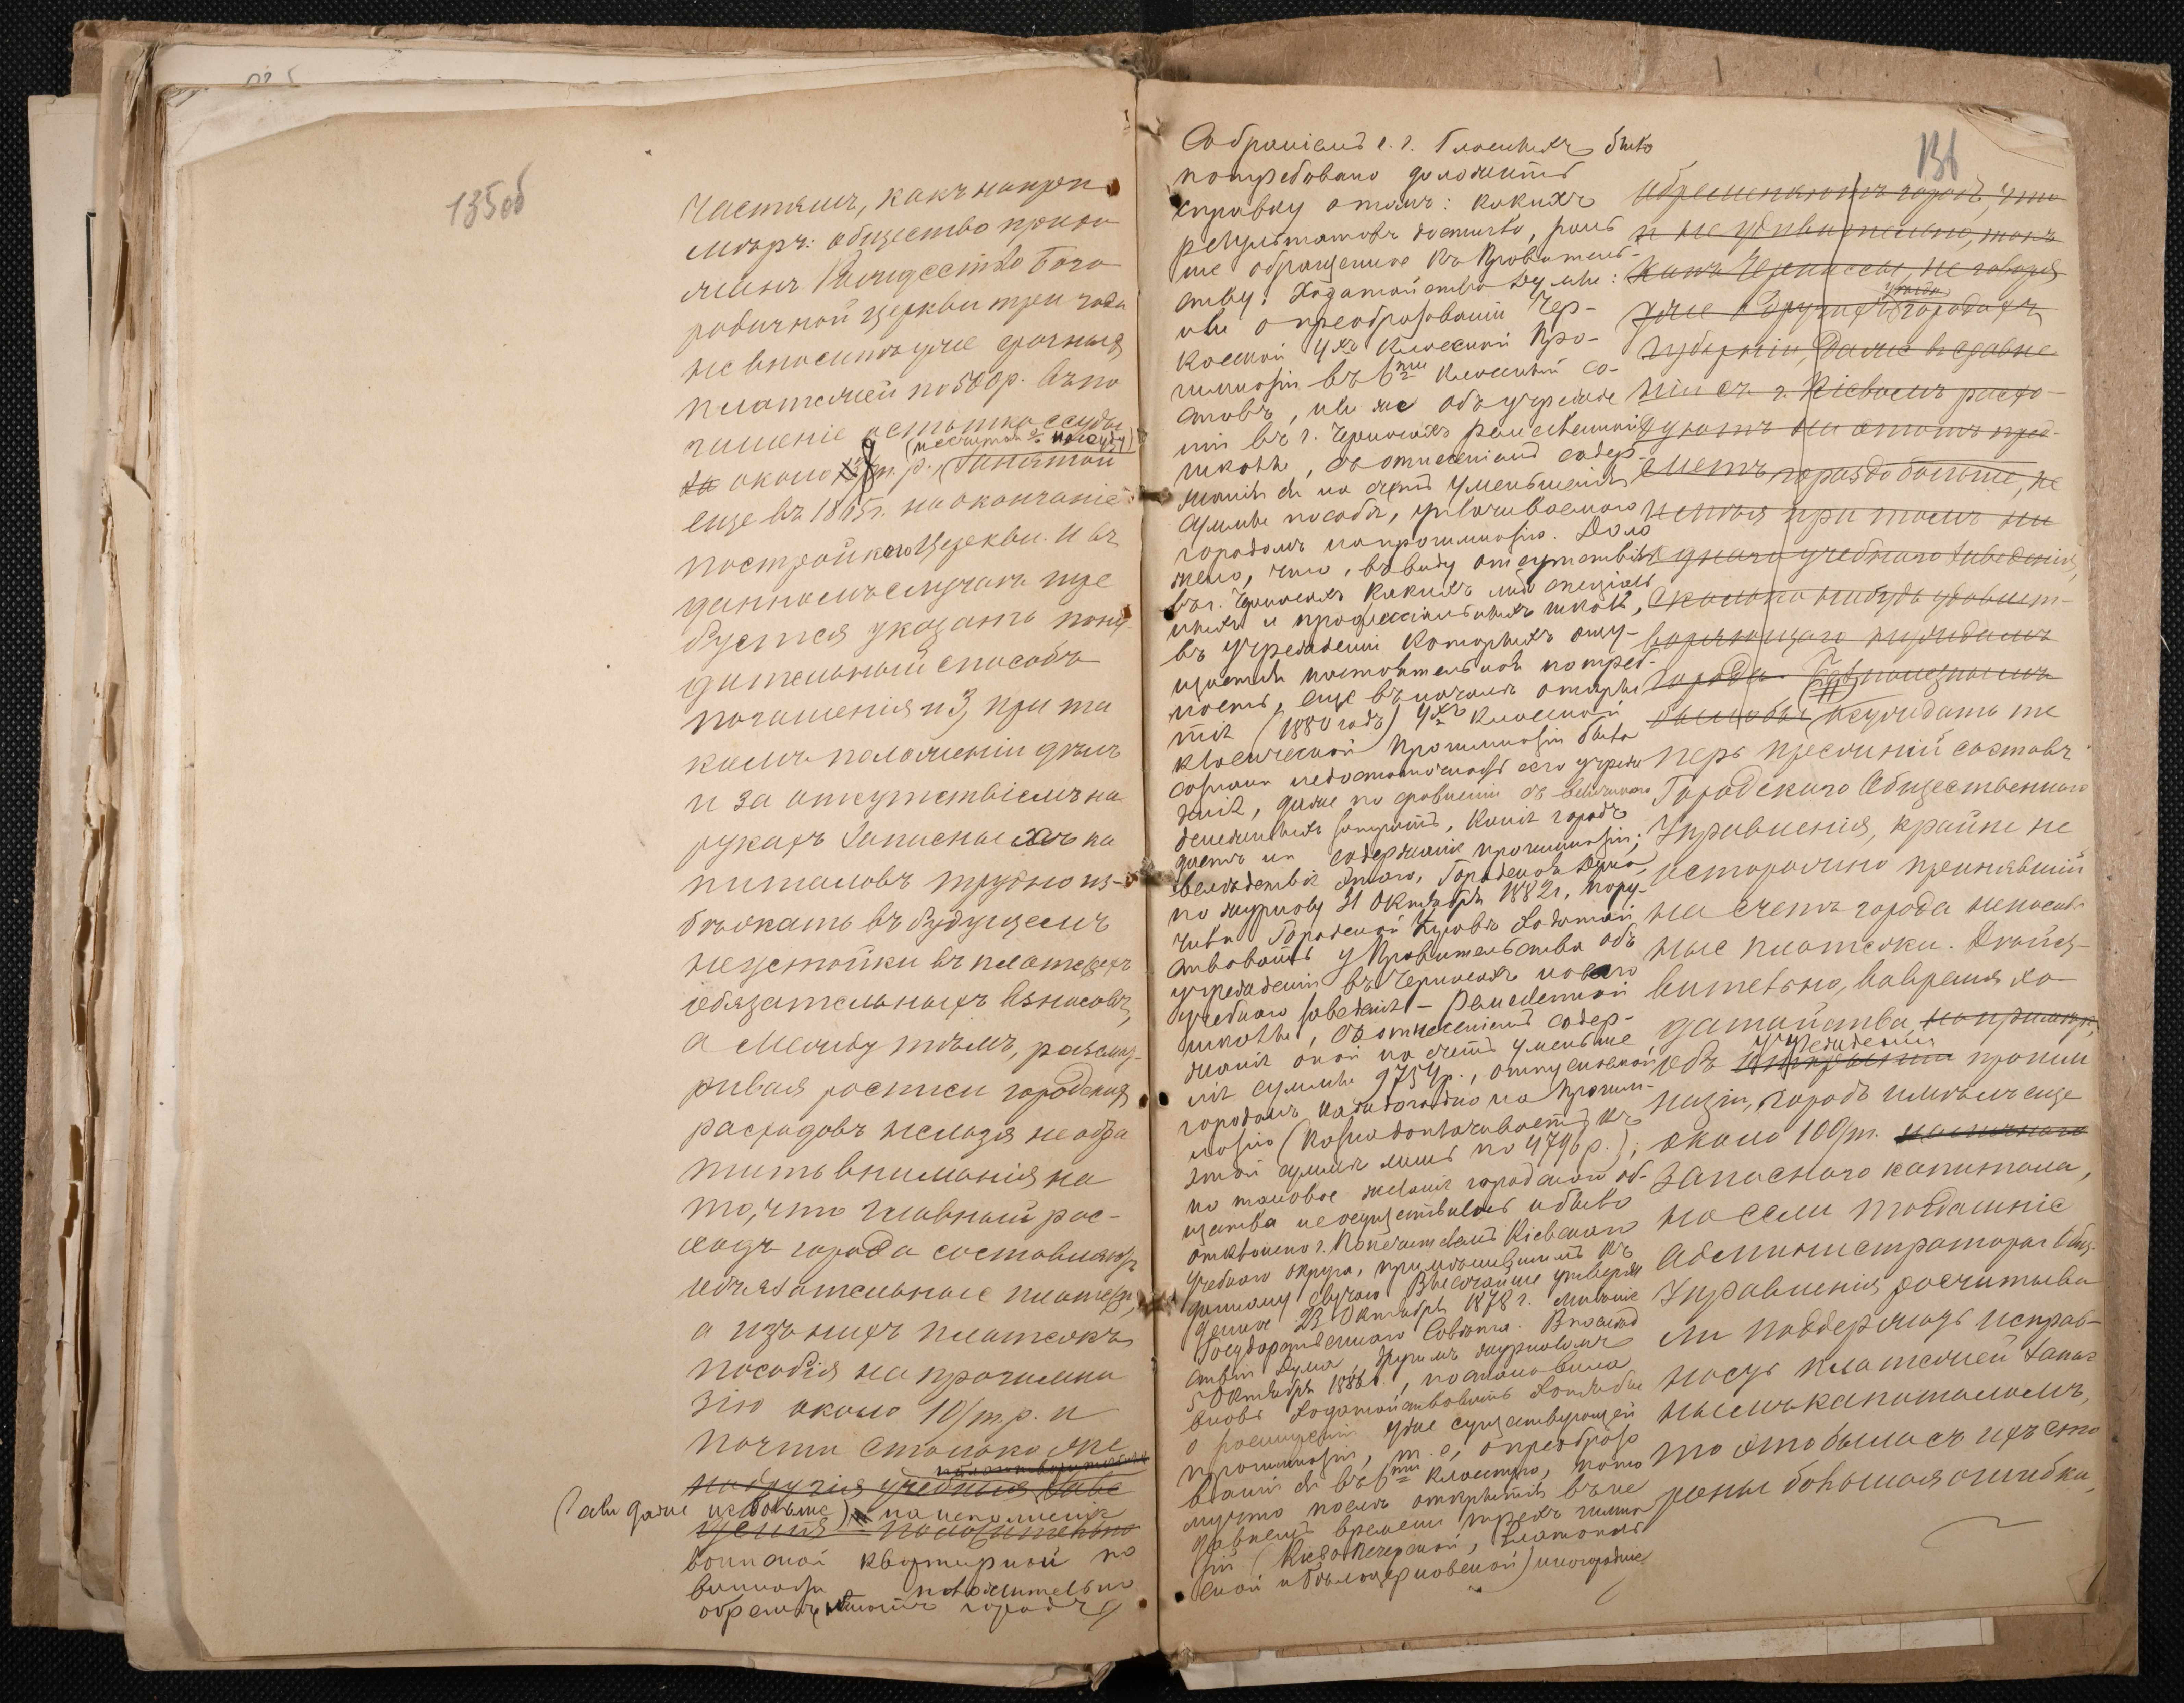 135об
частямъ, какъ напри
мѣръ: общество прихо
жанъ Рождество Бого
родичной церкви три года
не вноситъ уже срочныхъ
платежей по 500 р. въ по
гашеніе остатка ссуды
(не считая % на ссуду)
около т. р., занятой
еще въ 1865 г. на окончаніе
постройкою церкви. И въ
данномъ случаѣ тре
буется указать пону
дительный способъ
погашенія и 3, при та
комъ положеніи дѣлъ
и за отсутствіемъ на
рукахъ запасныхъ ка
питаловъ трудно из-
бѣжать въ будущемъ
неустойки въ платежахъ
обязательныхъ взносовъ,
а между тѣмъ, разсмат-
ривая росписи городскихъ
расходовъ нельзя не обра
тить вниманія на
то, что главный рас-
ходъ города составляютъ
обязательные платежи,
а изъ нихъ платежъ
пособія на прогимна
зію около 10/т. р. и
почти столько же
на другія учебныя заве
(али даже и больше) на исполненіе
денія положительно
воинской квартирной по
винности положительно
обременяютъ городъ
136
Собраніемъ г. г. Гласныхъ было
потребовано доложить
справку о томъ: какихъ
результатовъ достигло, раньше
обращенное къ Правитель-
ству: Ходатайство Думы:
или о преобразованіи Чер-
касской 4хъ классной Про-
гимназіи въ 6ти классный со-
ставъ, или же объ учрежде
ніи въ г. Черкассахъ ремесленной
школы, съ отнесеніемъ содер-
жанія ея на счетъ уменьшенія
суммы пособія, уплачиваемаго
городомъ на прогимназію. Доло
жено, что, въ виду отсутствія
въ г. Черкассахъ какихъ либо спеціаль
ныхъ и профессіональныхъ школъ,
въ учрежденіи которыхъ ощу-
щается настоятельная потреб-
ность, еще въ началѣ откры
тія (1880 годъ) 4хъ классной
классической Прогимназіи была
сознана недостаточность сего учреж
денія, даже по сравненію съ величиною
денежныхъ затратъ, какія городъ
даетъ на содержаніе прогимназіи;
вслѣдствіе этого, Городская Дума,
по журналу 21 Октября 1882 г., пору-
чила Городской Управѣ ходатай
ствовать у Правительства объ
учрежденіи въ Черкассахъ новаго
учебнаго заведенія – ремесленной
школы, съ отнесеніемъ содер-
жанія оной на счетъ уменьше
нія суммы 9754 р., отпускаемой
городомъ каждогодно на Прогим-
назію (Казна доплачиваетъ къ
этой суммѣ лишь по 4796 р.);
но таковое желаніе городского об-
щества не осуществилось и было
отклонено г. Попечителемъ Кіевскаго
Учебнаго округа, примѣнившимъ къ
данному случаю Высочайше утверж
денное 23 Октября 1878 г. мнѣніе
Государственнаго Совѣта. Впослѣд
ствіи Дума, другимъ журналомъ
5 Октября 1886 г., постановила
вновь ходатайствовать хотя бы
о расширеніи уже существующей
прогимназіи, т. е. о преобразо
ваніи ея въ 6ти классную, пото
му что послѣ открытія въ не
давнемъ времени трехъ гимна
зій (Кіево Печерской, Златополь
ской и Бѣлоцерковской) иногородніе
обременяютъ городъ, что
и не удивительно, такъ
какъ Черкассы, не говоря
уже о другихъ городахъ
губерніи, даже въ сравне
ніи съ г. Кіевомъ расхо-
дуютъ на этотъ пред-
метъ гораздо больше, не
имѣя при томъ ни
одного учебнаго заведенія,
сколько нибудь удовлет-
воряющаго нуждамъ
города.
было бы (П) обсуждать те
перь прежній составъ
Городского Общественнаго
Управленія, крайне не
осторожно принявшій
на счетъ города непосиль
ные платежи. Дѣйст-
вительно, во время хо-
датайства, напримѣръ,
учрежденія
объ открытіи прогим
назіи, городъ имѣлъ еще
около 100/т. наличнаго
запаснаго капитала,
но если тогдашніе
администраторы Общ.
Управленія расчитыва
ли поддержать исправ-
ность платежей запас
нымъ капиталомъ,
то это была съ ихъ сто
роны большая ошибка,